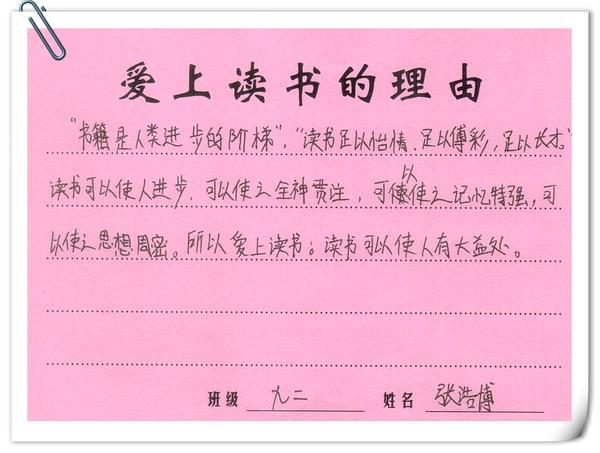 爱上读书的理由
“书籍是人类进步的阶梯”，“读书足以怡情、足以傅彩，足以长才。”
读书可以使人进步，可以使之全神贯注，可以使之记忆特强，可
以使之思想周密。所以爱上读书。读书可以使人有大益处。
班级 九二 姓名 张浩博